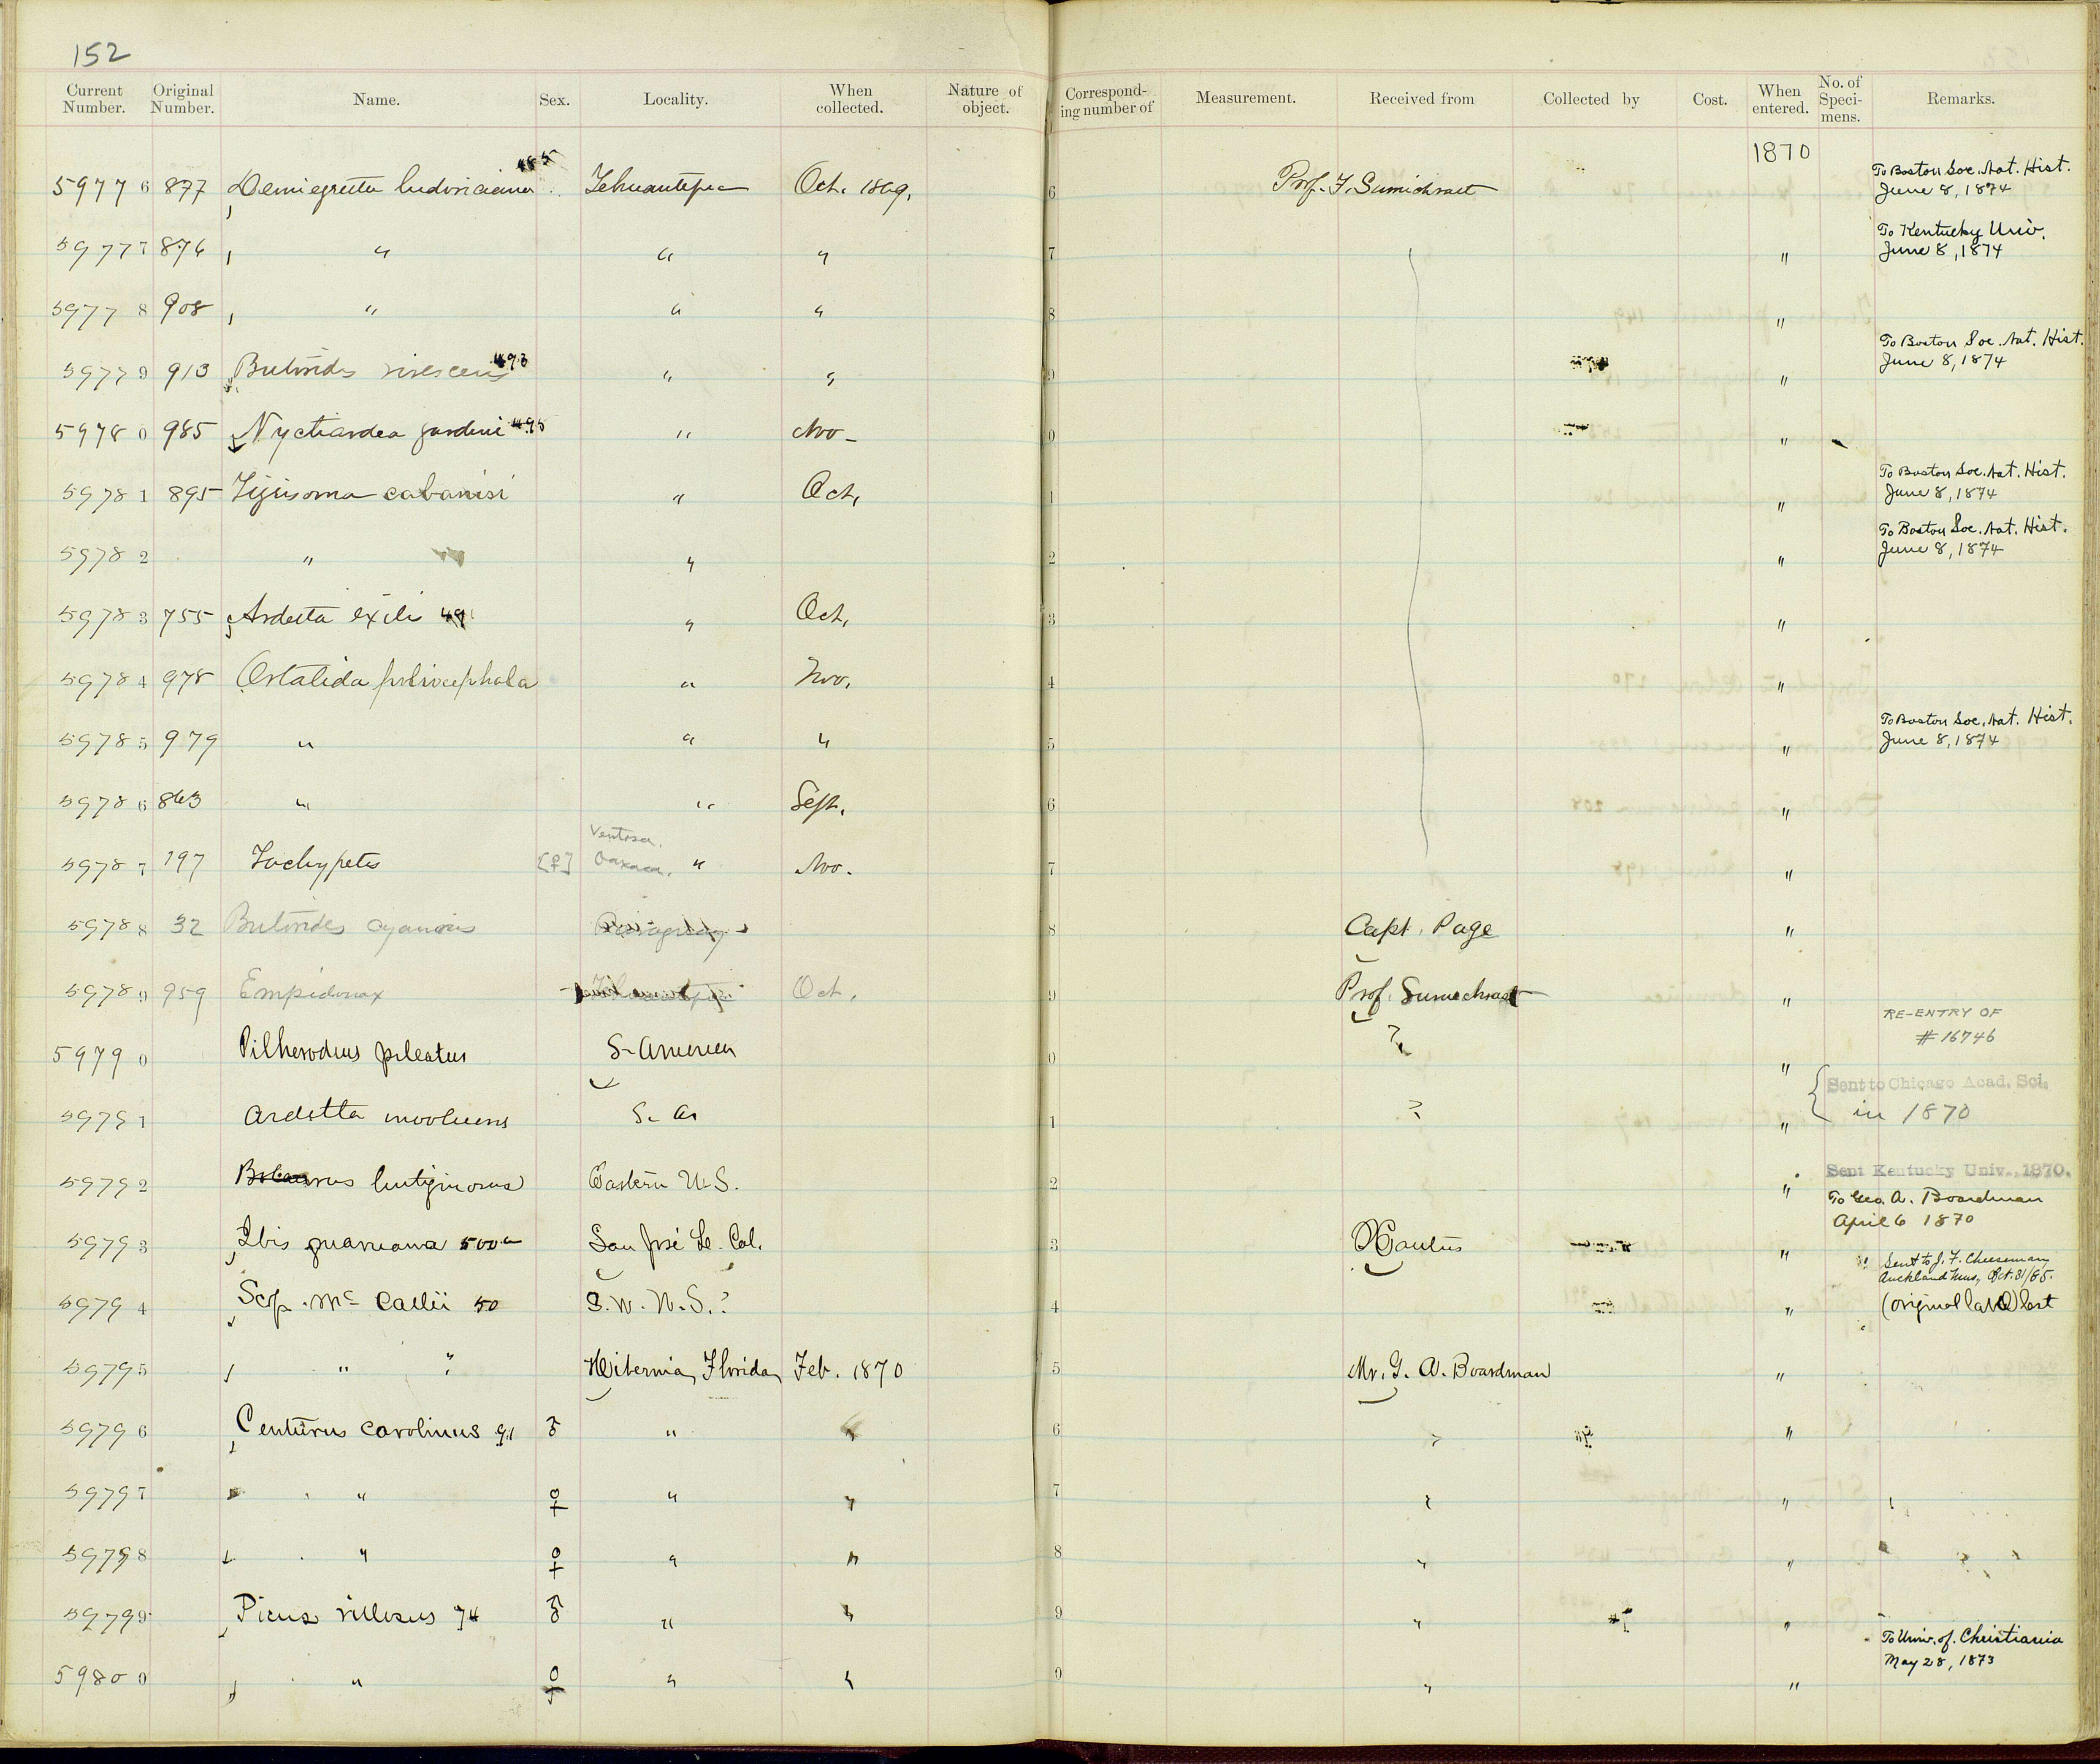 152
Current Number. Original Number. Name. Sex. Locality. When collected. Nature of object. Corresponding number of Measurement. Received from Collected by Cost. When entered. No. of Specimens. Remarks.
1870
59776 877 Demiegretta ludoviciana 485 Tehuantepec Oct. 1869. Prof. F. Sumichrast To Boston Soc. Nat. Hist. June 8, 1874
59777 876 " " " " To Kentucky Univ. June 8, 1874
59778 908 " " " "
59779 913 Butorides virescens 493 " " " To Boston Soc. Nat. Hist. June 8, 1874
59780 985 Nyctiardea gardeni 495 " Nov. "
59781 895 Tigrisoma cabanisi " Oct. " To Boston Soc. Nat. Hist. June 8, 1874
59782 " " " To Boston Soc. Nat. Hist. June 8, 1874
59783 755 Ardetta exilis 491 " Oct. "
59784 978 Ortalida poliocephala " Nov. "
59785 979 " " " " To Boston Soc. Nat. Hist. June 8, 1874
59786 863 " " Sept. "
59787 197 Tachypetes [♀] Ventosa, Oaxaca. " Nov. "
59788 32 Butorides cyanurus Paraguay Capt. Page "
59789 959 Empidonax Tehuantepec Oct. Prof. Sumichrast "
59790 Pilherodius pileatus S. America ? " RE-ENTRY OF #16746
59791 Ardetta involucris S. Am ? " Sent to Chicago Acad. Sci. in 1870
59792 Botaurus lentiginosus Eastern U.S. " Sent Kentucky Univ., 1870. To Geo. A. Boardman April 6 1870
59793 Ibis guarauna 500a San José L. Cal. Xantus " Sent to J. F. Cheeseman, Auckland Mus, Oct. 31/85.
59794 Scop. McCallii 50 S.W. U.S.? " (original label) lost
59795 " " Hibernia, Florida, Feb. 1870 Mr. G. A. Boardman "
59796 Centurus carolinus 91 ♂ " " " "
59797 " " ♀ " " " "
59798 " ♀ " " " "
59799 Picus villosus 74 ♂ " " " "
59800 " ♀ " " " " To Univ. of Christiania May 28, 1873